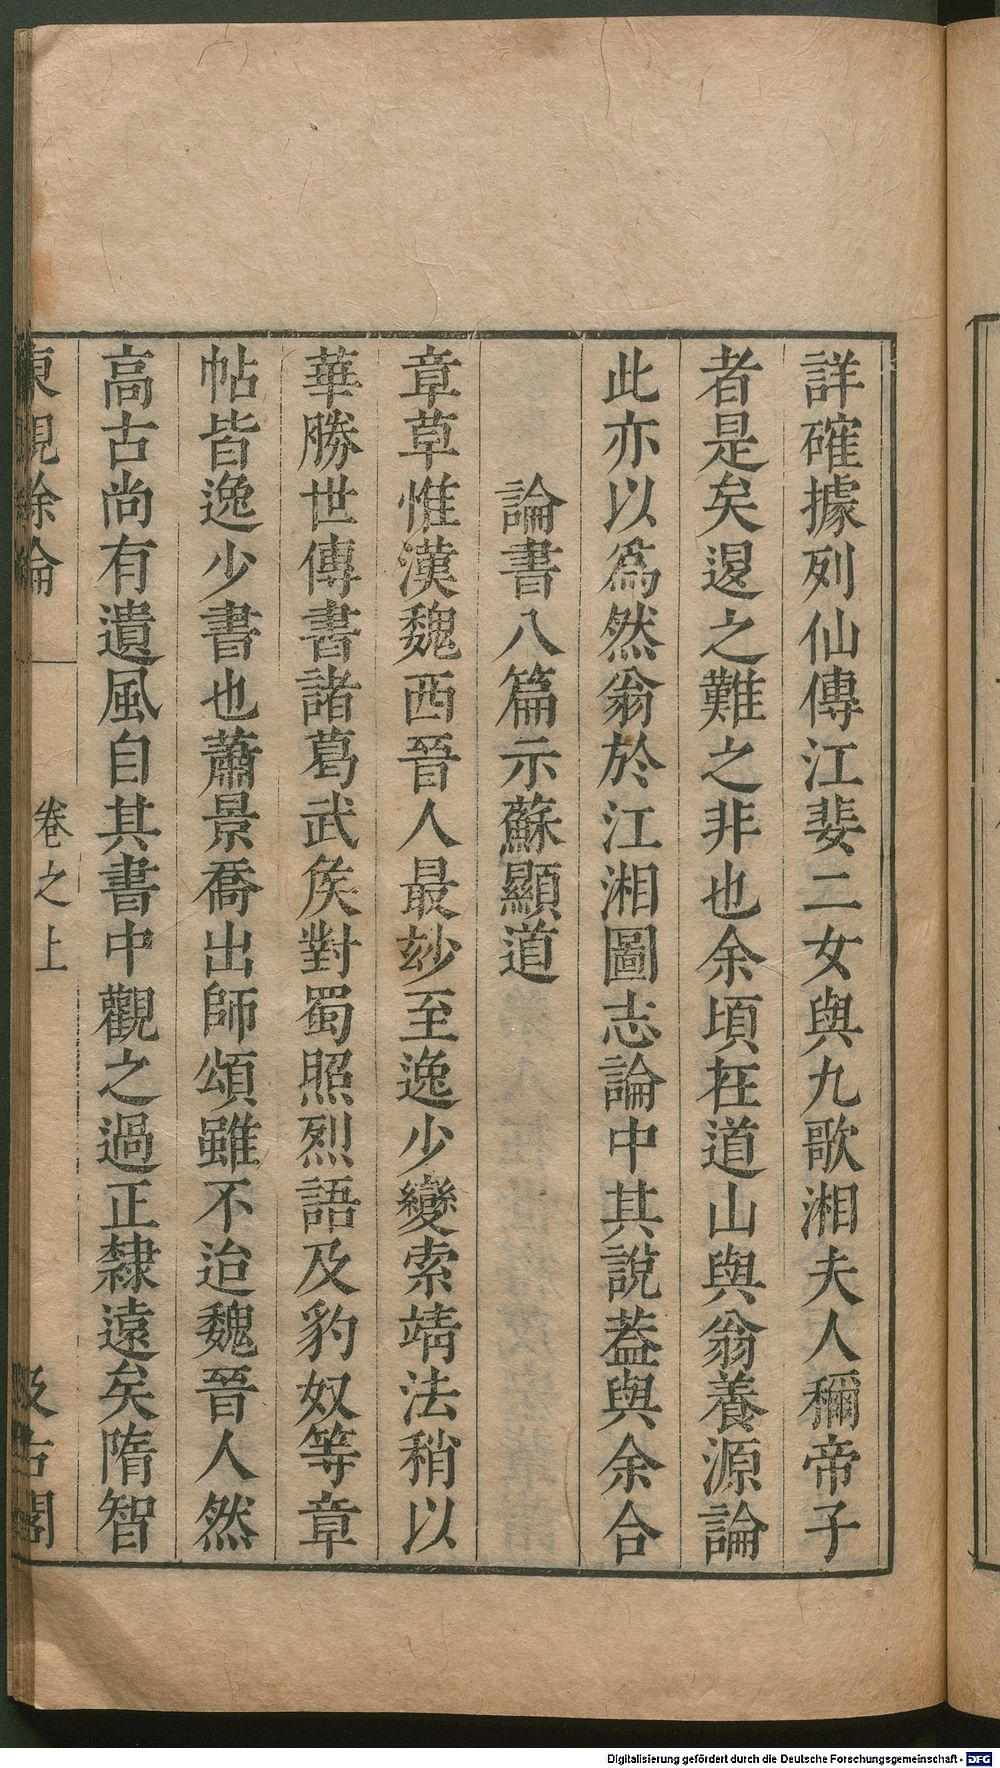 詳確據列仙傳江婓二女與九歌湘夫人稱帝子
者是矣退之難之非也余頃在道山與翁養源論
此亦以為然翁於江湘圖志論中其說葢與余合
論書八篇示蘇顯道
章草惟漢魏西晉人最玅至逸少變索靖法稍以
華勝世傳書諸葛武矦對蜀照烈語及豹奴等章
帖皆逸少書也蕭景喬出師頌雖不迨魏晉人然
高古尚有遺風自其書中觀之過正隸遠矣隋智
東觀餘論
卷之上
汲古閣
Digitalisierung gefördert durch die Deutsche Forschungsgemeinschaft - DFG